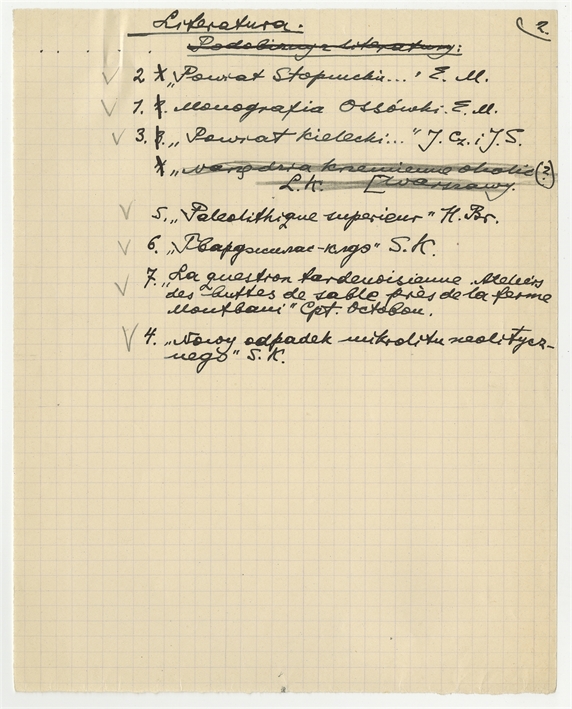 2.
Literatura.
Podobizny z literatury:
2 „Powiat Stopnicki..." E. M.
1. Monografia Ossówki. E. M.
3. „Powiat kielecki..." J. Cz. i J. S.
„narzędzia krzemienne okolic (?)
L. K. [Warszawy.
5. „Paleolithique superieur" H. Br.
6. „Гварджилас-клдэ" S. K.
7. „La question tardenoisienne. Ateliers
des buttes de sable près de la ferme
Montbani" Cpt. Octobon.
4. „Nowy odpadek mikrolitu neolitycz-
nego" S. K.